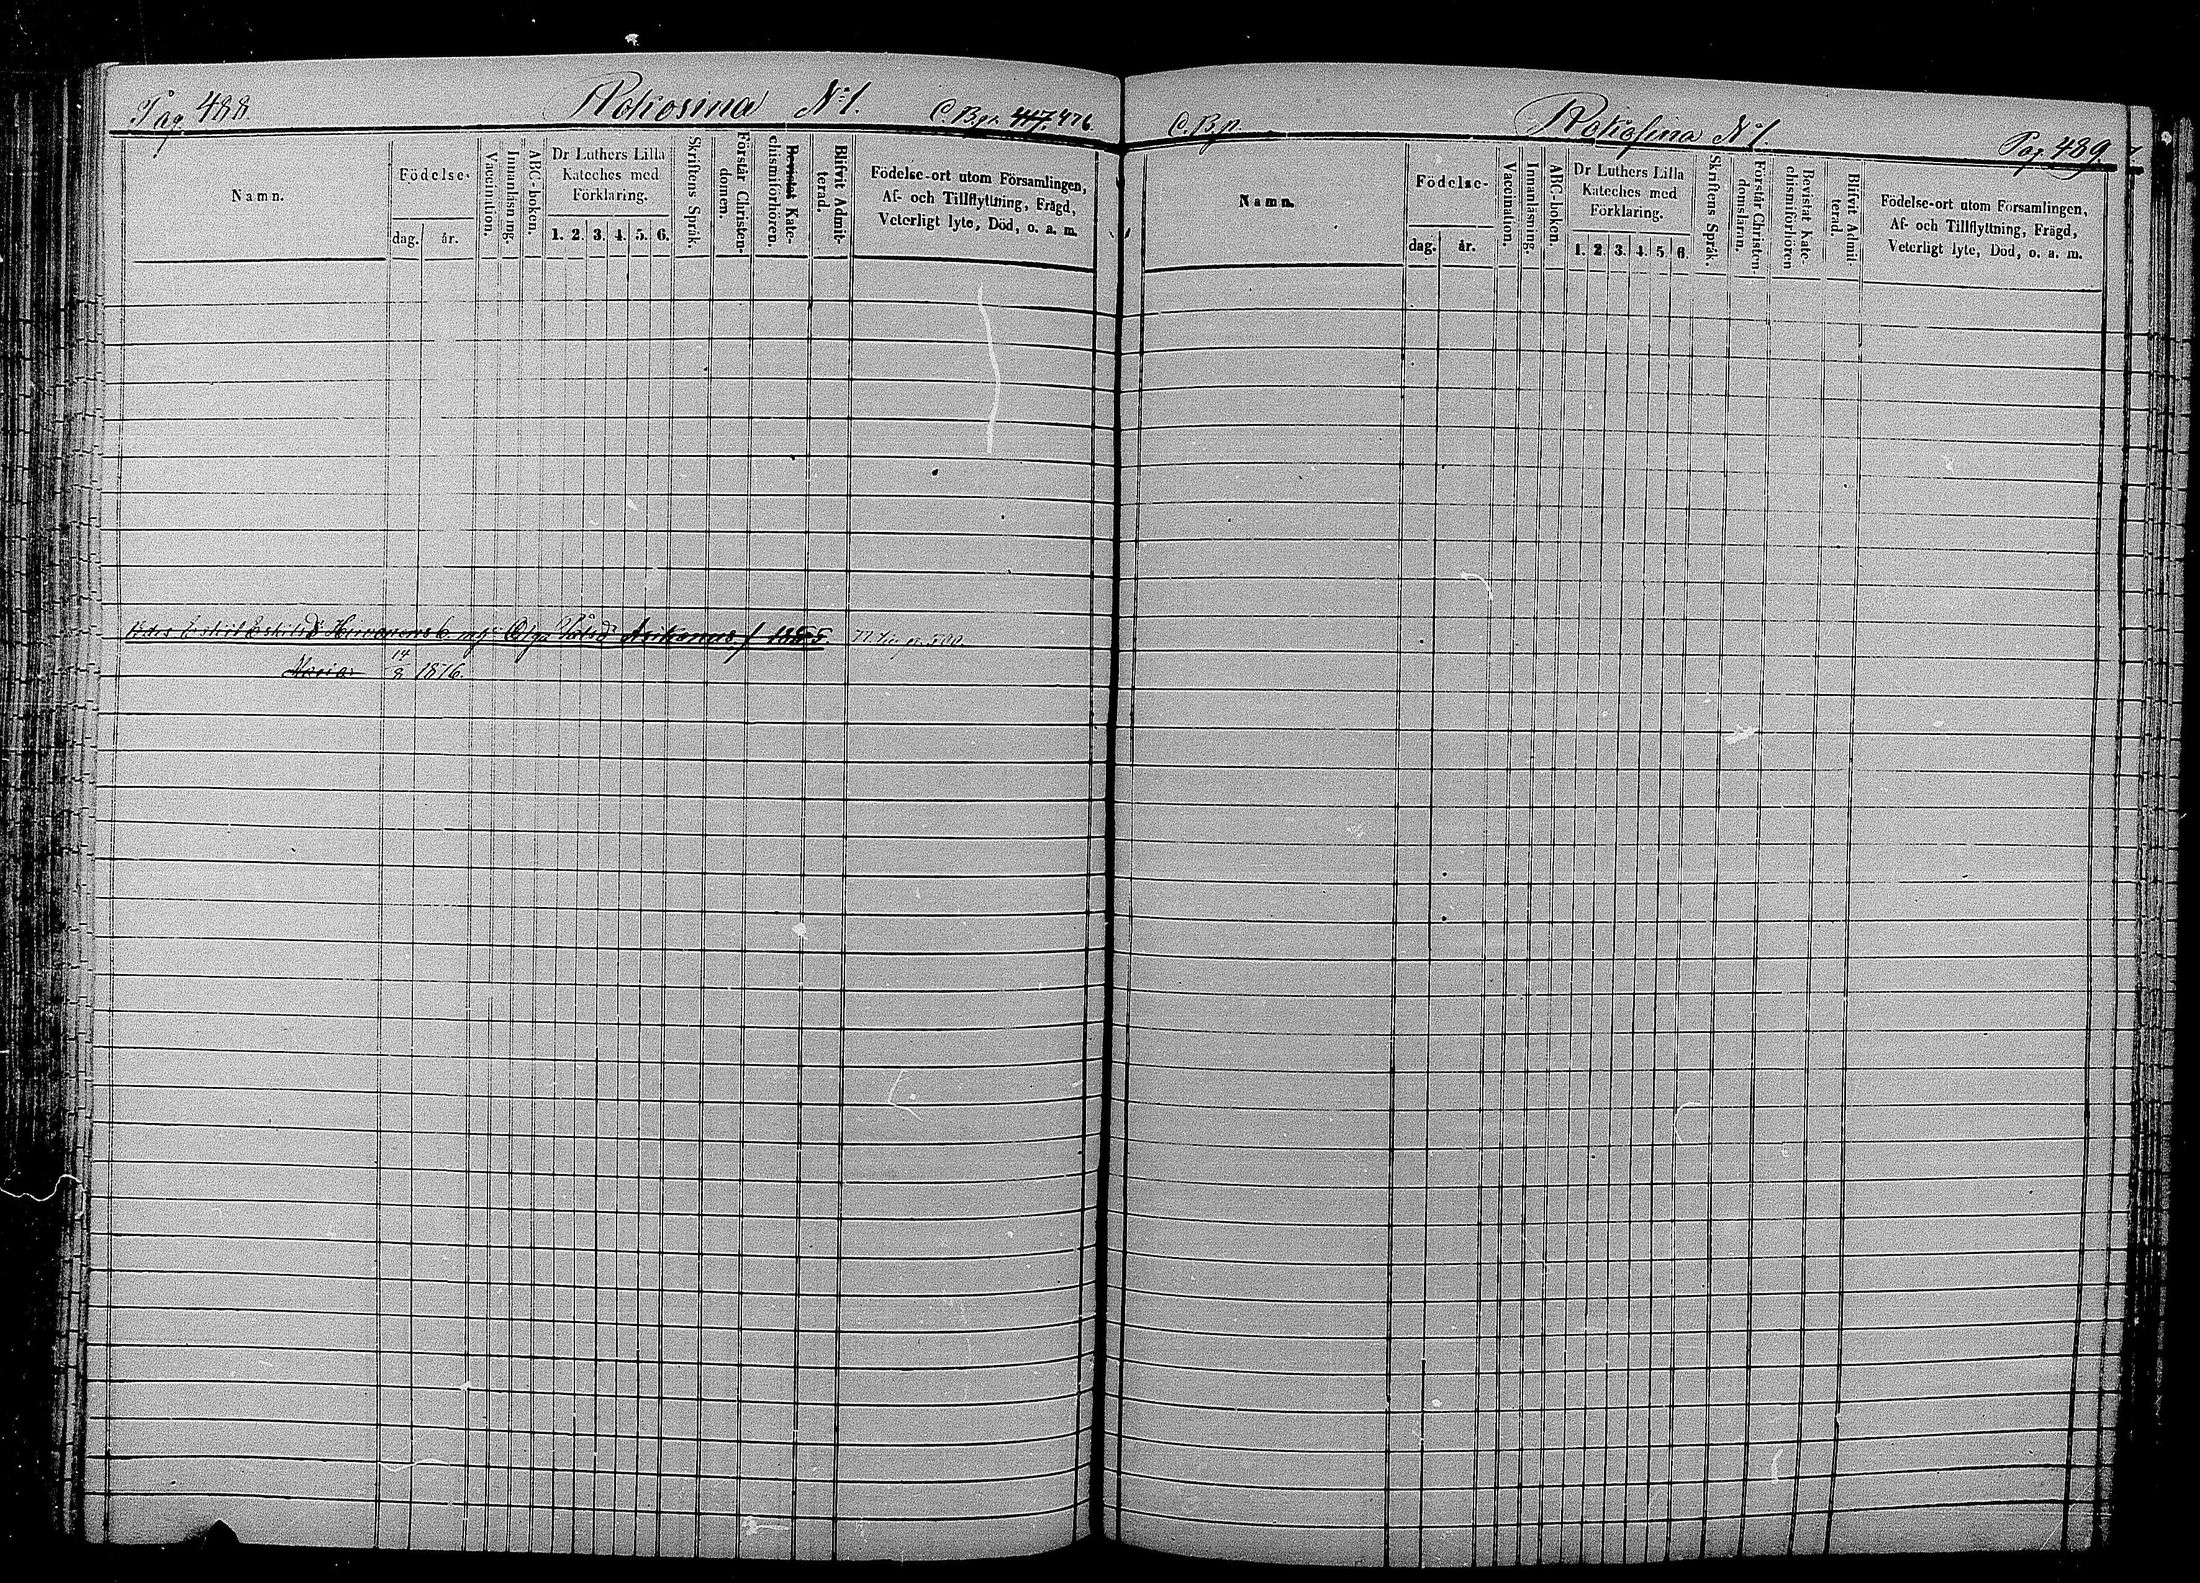 Pag. 488 Rokosina No 1. C.B.p. 447. 476.
Namn.
Födelse-
dag. år.
Vaccination.
Innanläsning.
ABC-boken.
Dr Luthers Lilla
Kateches med
Förklaring.
1. 2. 3. 4. 5. 6.
Skriftens Språk.
Förstår Christen-
domen.
Bevistat Kate-
chismiförhören.
Blifvit Admit-
terad.
Födelse-ort utom Församlingen,
Af- och Tillflyttning, Frägd,
Veterligt lyte, Död, o. a. m.
Eskil Eskilsd Olga Påls Asikanus f 1855
Maria 14/8 1876.
C.B.p. Rokosina No 1. Pag. 489
Namn.
Födelse-
dag. år.
Vaccination.
Innanläsning.
ABC-boken.
Dr Luthers Lilla
Kateches med
Förklaring.
1. 2. 3. 4. 5. 6.
Skriftens Språk.
Förstår Christen-
domsläran.
Bevistat Kate-
chismiförhören
Blifvit Admit-
terad.
Födelse-ort utom Församlingen,
Af- och Tillflyttning, Frägd,
Veterligt lyte, Död, o. a. m.